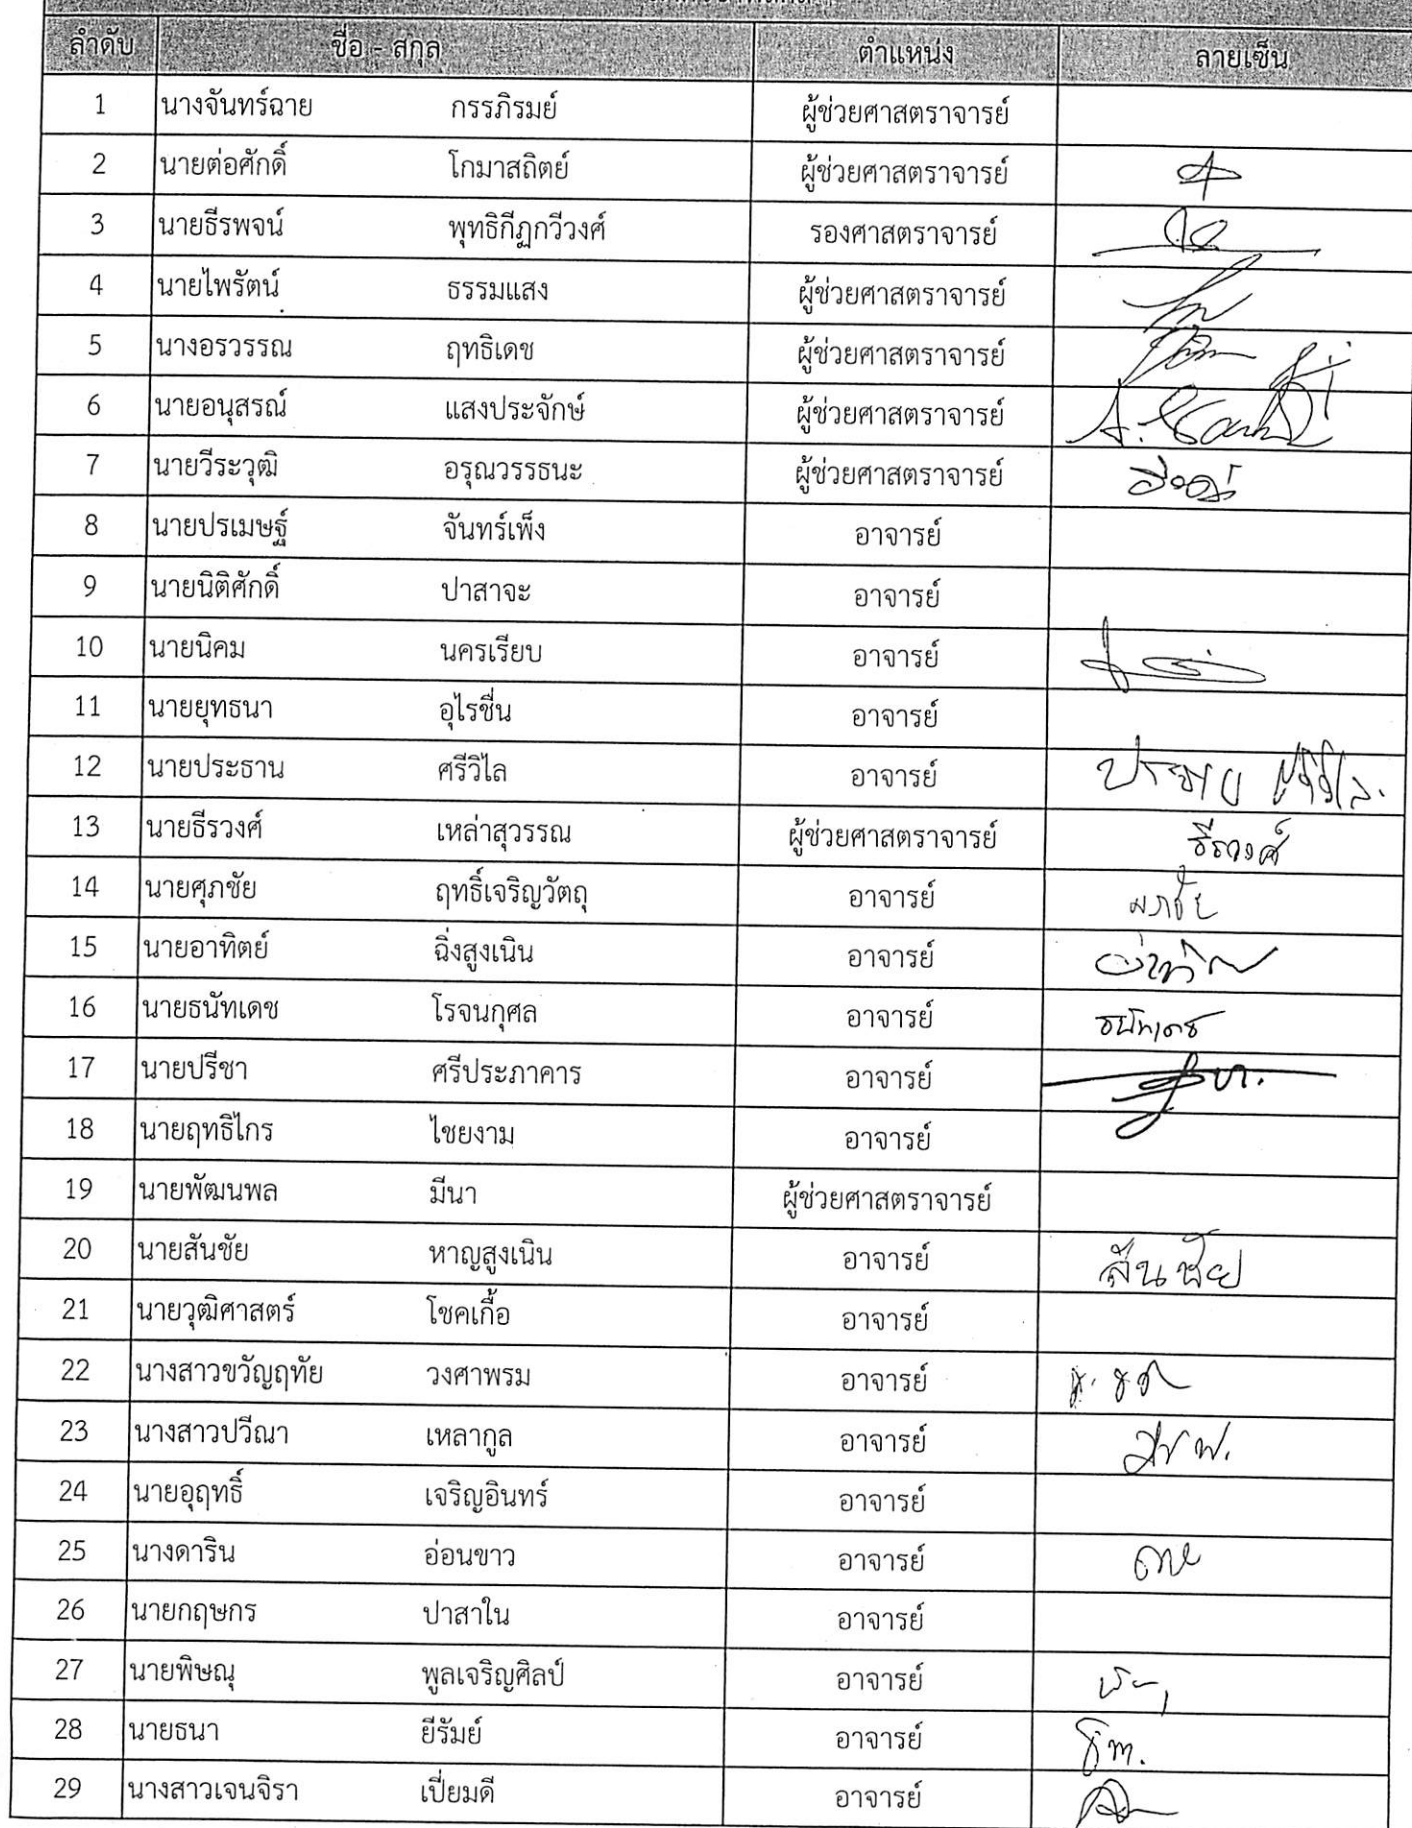 ลำดับ ชื่อ - สกุล ตำแหน่ง ลายเซ็น
1 นางจันทร์ฉาย กรรภิรมย์ ผู้ช่วยศาสตราจารย์
2 นายต่อศักดิ์ โกมาสถิตย์ ผู้ช่วยศาสตราจารย์
3 นายธีรพจน์ พุทธิกีฏกวีวงศ์ รองศาสตราจารย์
4 นายไพรัตน์ ธรรมแสง ผู้ช่วยศาสตราจารย์
5 นางอรวรรณ ฤทธิเดช ผู้ช่วยศาสตราจารย์
6 นายอนุสรณ์ แสงประจักษ์ ผู้ช่วยศาสตราจารย์
7 นายวีระวุฒิ อรุณวรรธนะ ผู้ช่วยศาสตราจารย์
8 นายปรเมษฐ์ จันทร์เพ็ง อาจารย์
9 นายนิติศักดิ์ ปาสาจะ อาจารย์
10 นายนิคม นครเรียบ อาจารย์
11 นายยุทธนา อุไรชื่น อาจารย์
12 นายประธาน ศรีวิไล อาจารย์
13 นายธีรวงศ์ เหล่าสุวรรณ ผู้ช่วยศาสตราจารย์ ธีรวงศ์
14 นายศุภชัย ฤทธิ์เจริญวัตถุ อาจารย์
15 นายอาทิตย์ ฉิ่งสูงเนิน อาจารย์
16 นายธนัทเดช โรจนกุศล อาจารย์ ธนัทเดช
17 นายปรีชา ศรีประภาคาร อาจารย์
18 นายฤทธิไกร ไชยงาม อาจารย์
19 นายพัฒนพล มีนา ผู้ช่วยศาสตราจารย์
20 นายสันชัย หาญสูงเนิน อาจารย์ สันชัย
21 นายวุฒิศาสตร์ โชคเกื้อ อาจารย์
22 นางสาวขวัญฤทัย วงศาพรม อาจารย์
23 นางสาวปวีณา เหลากูล อาจารย์
24 นายอุฤทธิ์ เจริญอินทร์ อาจารย์
25 นางดาริน อ่อนขาว อาจารย์
26 นายกฤษกร ปาสาใน อาจารย์
27 นายพิษณุ พูลเจริญศิลป์ อาจารย์
28 นายธนา ยีรัมย์ อาจารย์
29 นางสาวเจนจิรา เปี่ยมดี อาจารย์